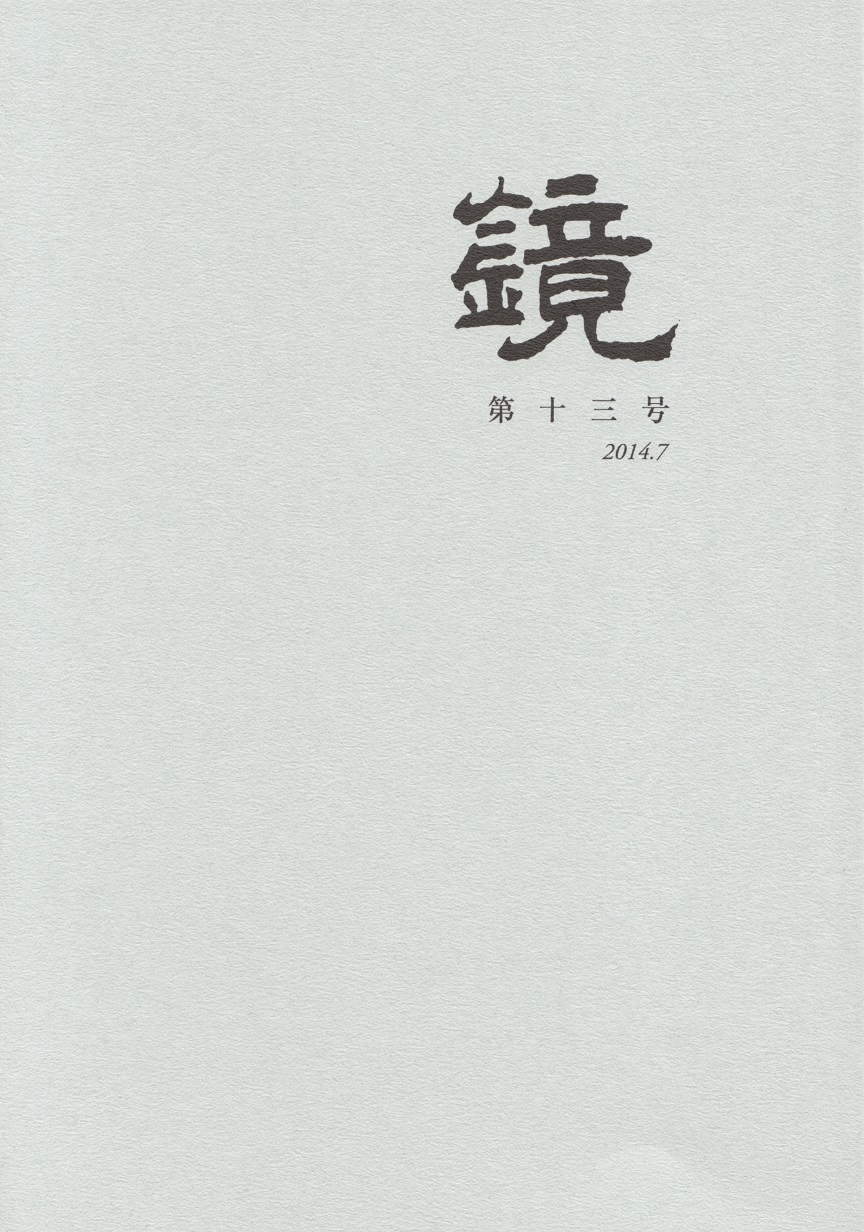 鏡
第十三号
2014.7